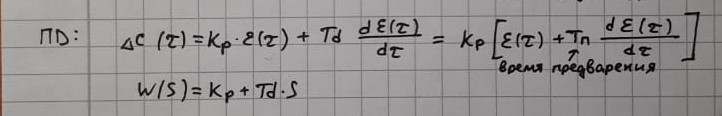 ПД: ΔC(τ) = Kp · ε(τ) + Td dε(τ)/dτ = Kp [ε(τ) + Tп dε(τ)/dτ]
↑
время предварения
W(S) = Kp + Td · S